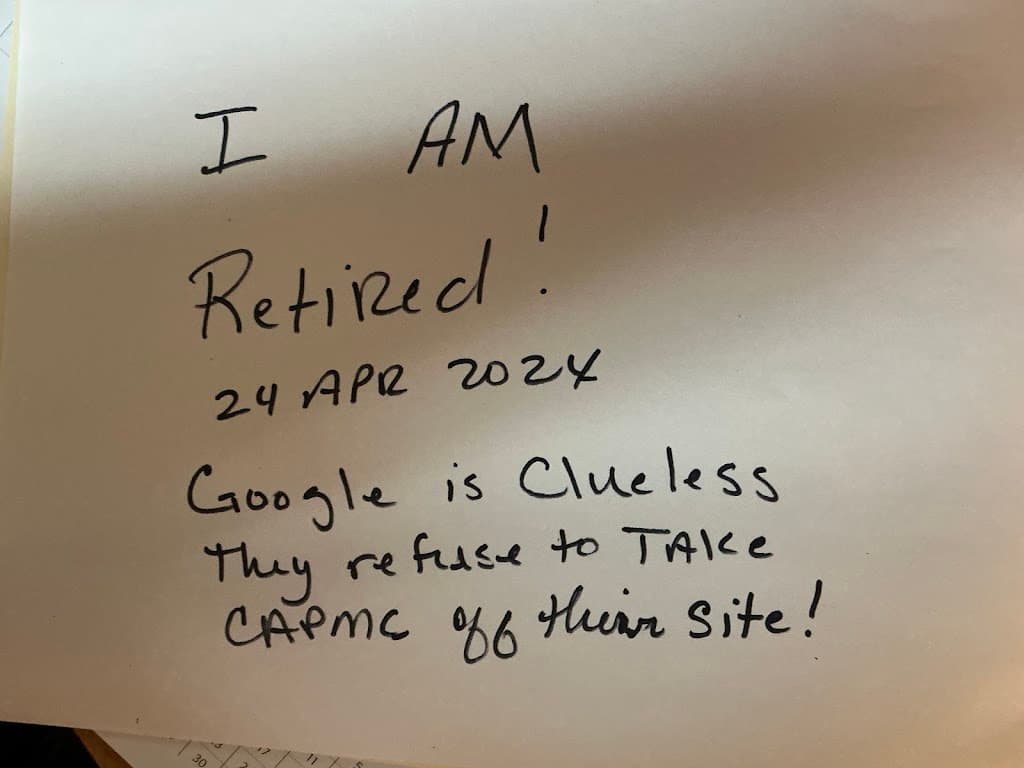 I AM
Retired!
24 APR 2024
Google is Clueless
they refuse to TAKe
CAPMC off their site!
30 2 17 11